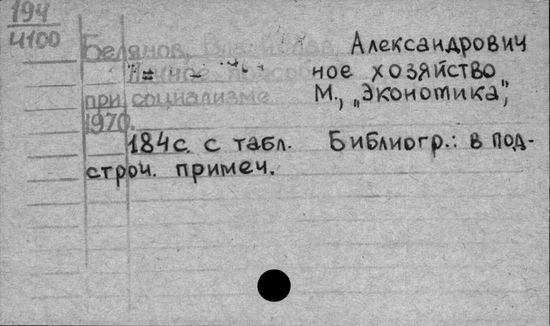 194
4100
Белянов, Александрович
ное хозяйство
при социализме М., „Экономика",
1970.
184с. с табл. Библиогр.: в под-
строч. примеч.